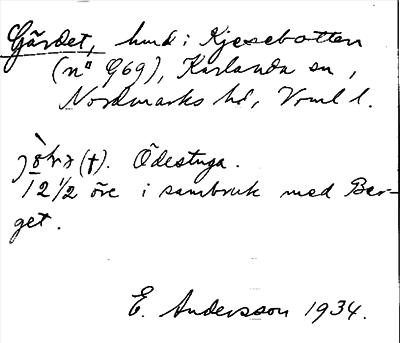 Gärdet, hmd i Kjesebotten
(nº 969), Karlanda sn,
Nordmarks hd, Vrml l.
(t). Ödestuga.
12 1/2 öre i sambruk med Ber-
get.
E. Andersson 1934.